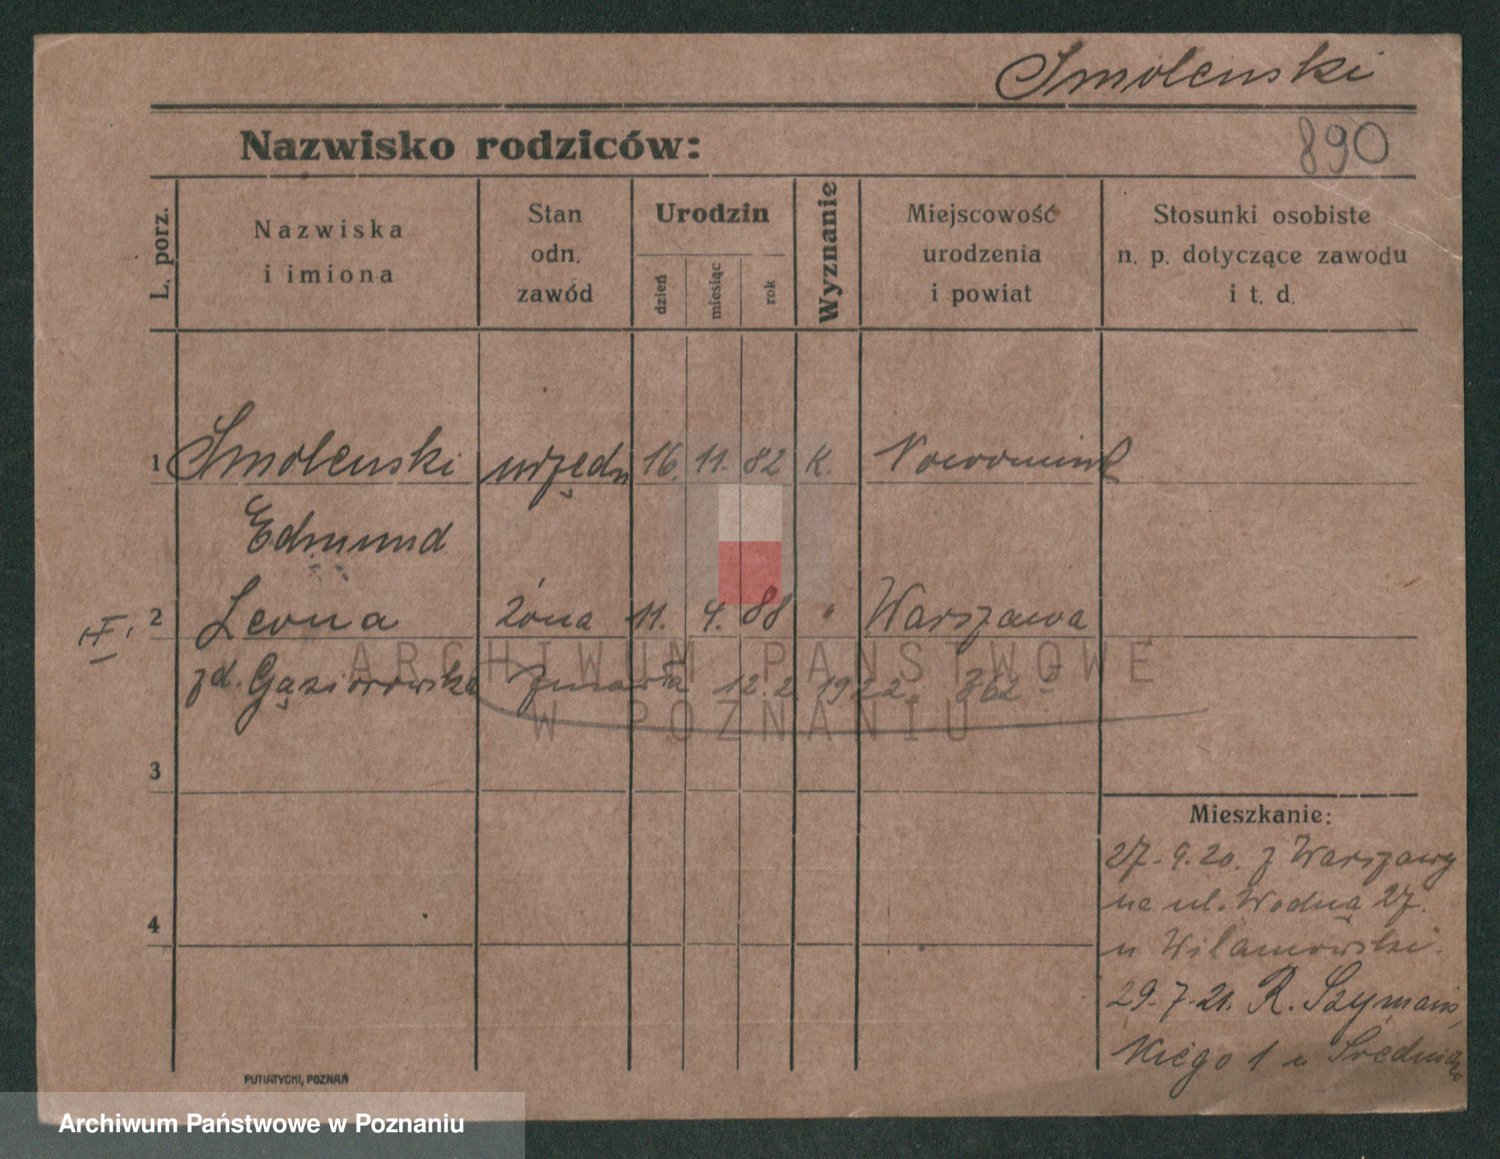 Smolenski
890
Nazwisko rodziców:
L. porz.
Nazwiska
i imiona
Stan
odn.
zawód
Urodzin
dzień
miesiąc
rok
Wyznanie
Miejscowość
urodzenia
i powiat
Stosunki osobiste
n. p. dotyczące zawodu
i t. d.
1 Smolenski urzędn 16. 11. 82 K.
Edmund
2 Leona żona 11. 4. 88 " Warszawa
zd. Gąsiorowska zmarła 12. 2 1922. 362
3
4
Mieszkanie:
27. 9. 20. z Warszawy
na ul. Wodna 27.
u Wilamowski.
29. 7. 21. R. Szymań
Kiego 1 u
PUTIATYCKI, POZNAŃ
ARCHIWUM PAŃSTWOWE
W POZNANIU
Archiwum Państwowe w Poznaniu